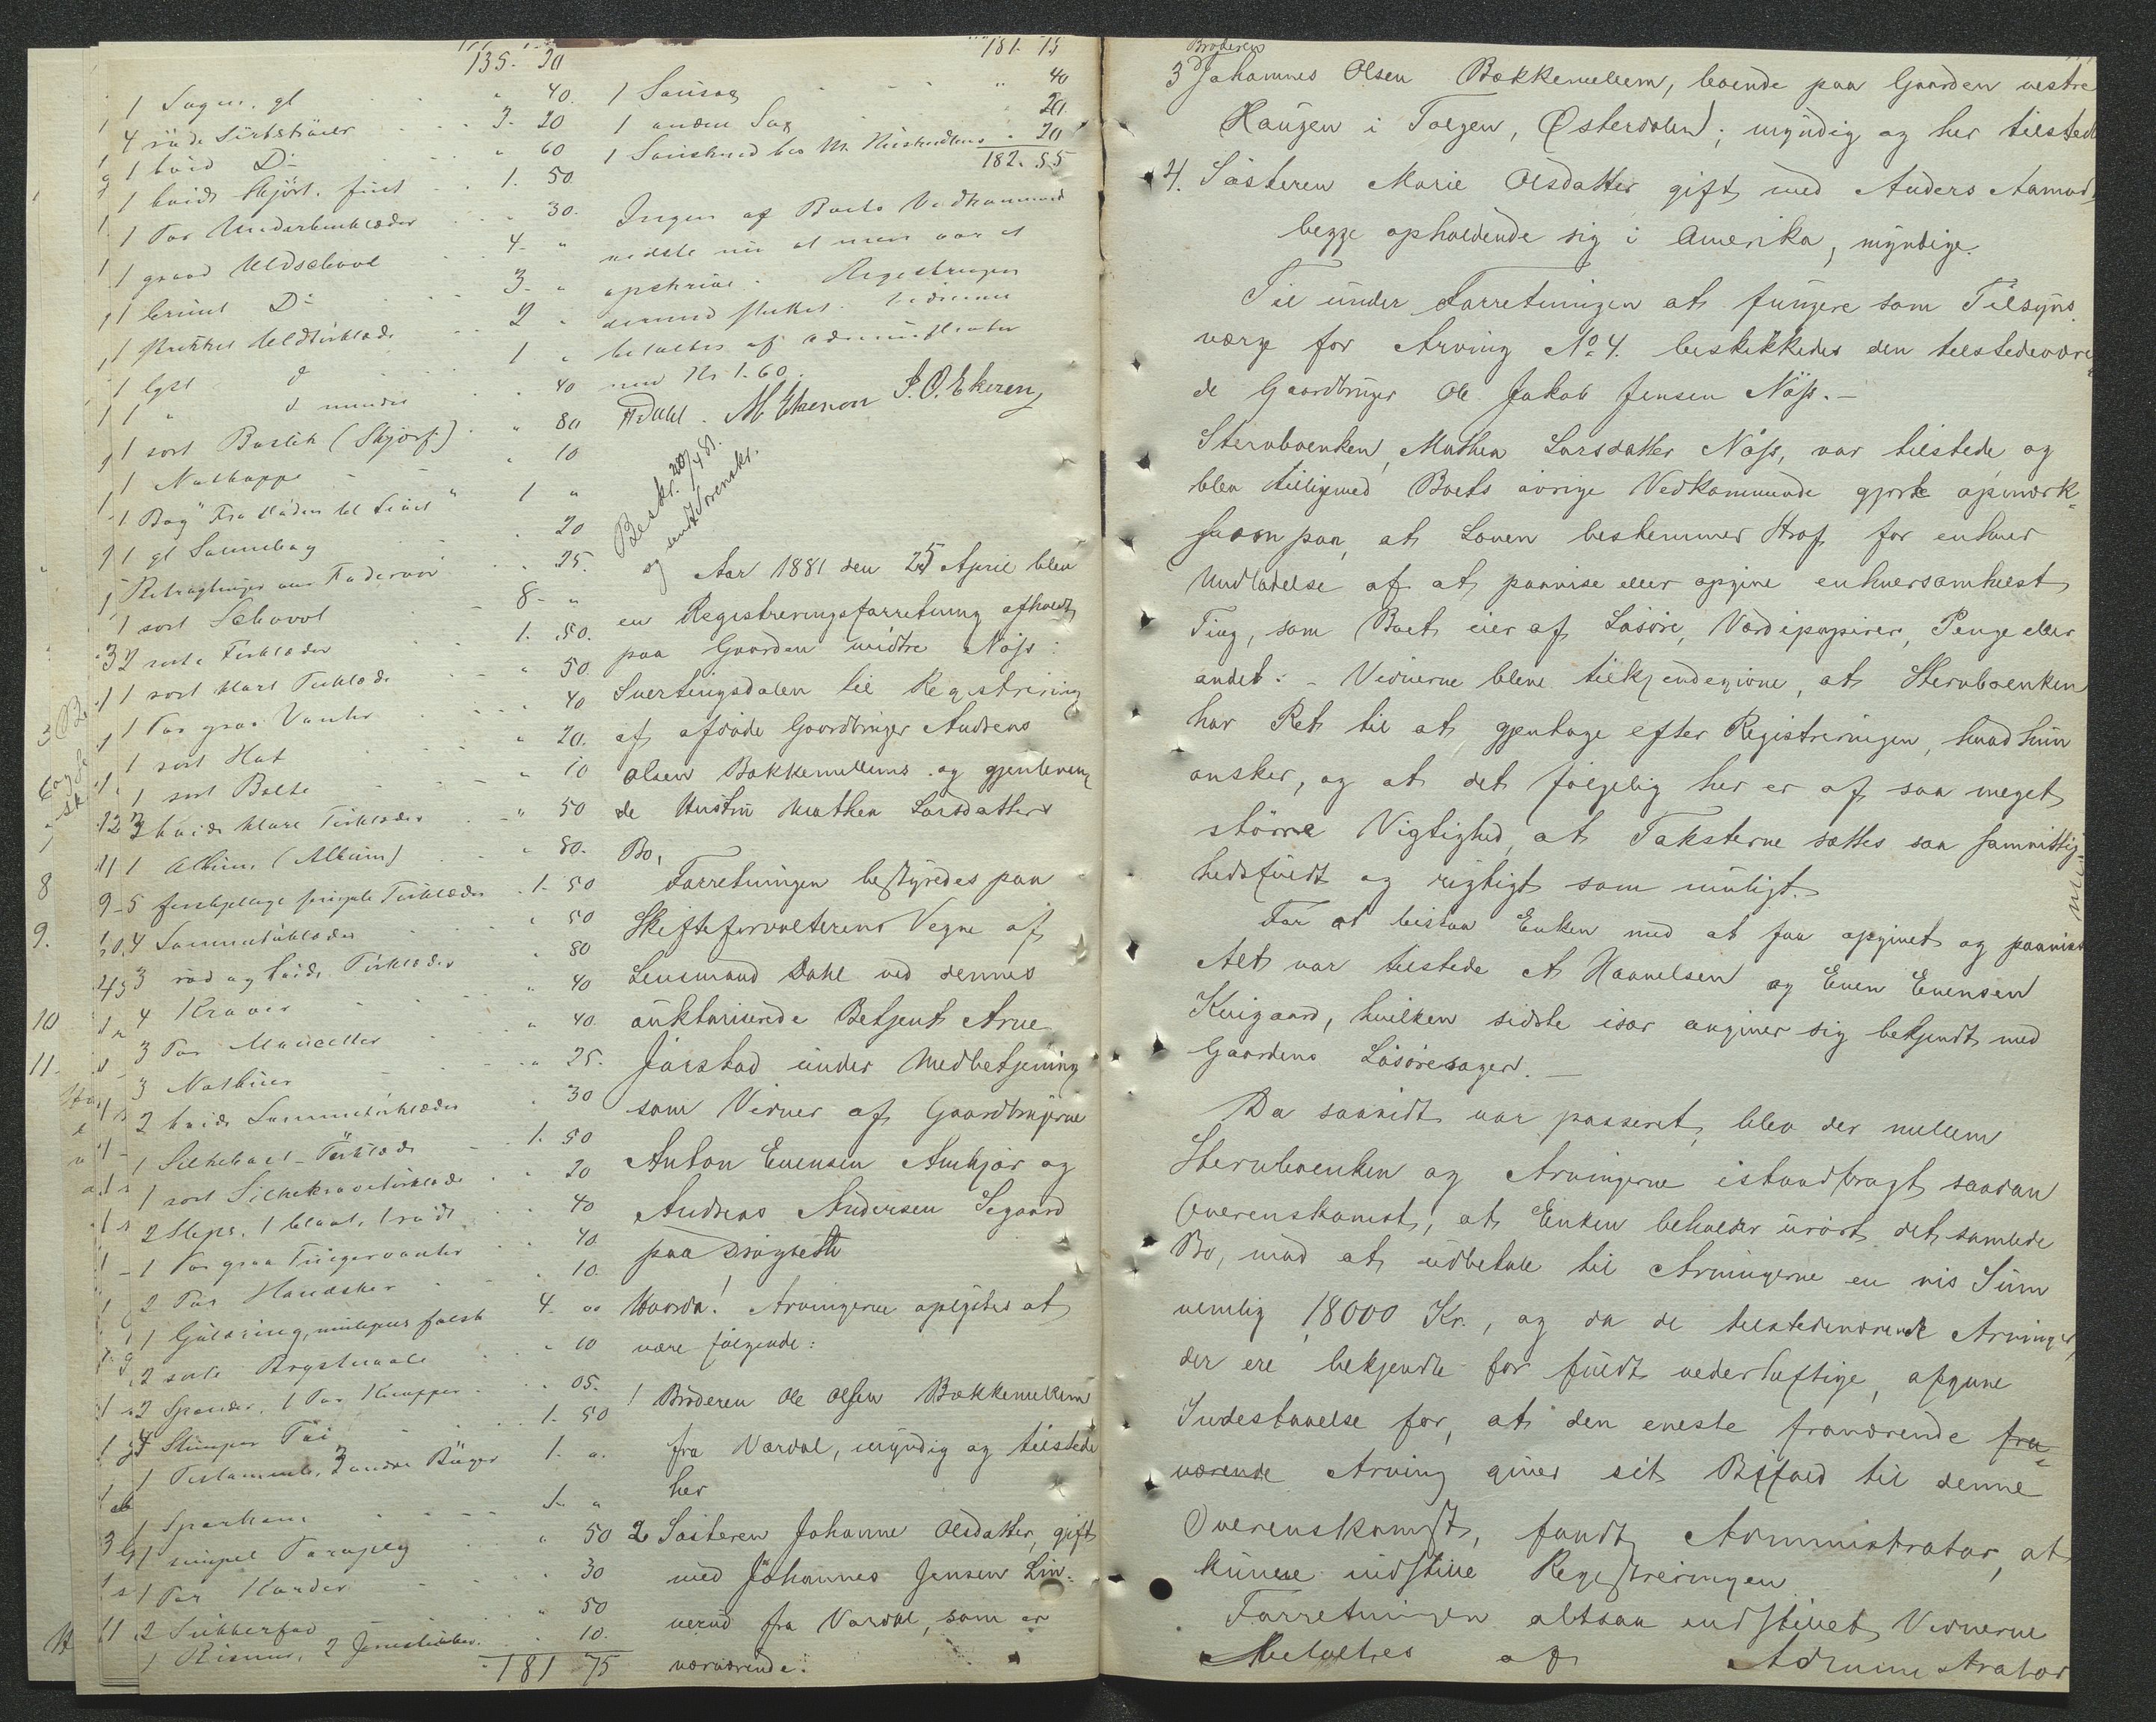 135. 20
1 Lagen, gl " 40.
4 röde Skjörtetröier 3. 20
1 hvid Do " 60
1 hvidt Skjört, fint 1. 50
1 Par Underbenklæder " 30.
1 graat Uldschavl 4. "
1 brunt Do 3. "
1 strikket Uldtörklæde 2 "
1 lyst d 1 "
1 " d mindre " 40
1 sort Buslik (Skjörf) " 80
1 Nathuppe " 10
1 Bog "Fra Döden til Livet" 1 "
1 gl Salmebog " 20
1 Betragtninger over Fadervor " 25.
1 sort Schavl 8. "
2 sorte Törklæder 1. 50.
1 sort klart Törklæde " 50
1 Par graa Vanter " 40
1 sort Hat " 20.
1 sort Belte " 10
3 hvide klare Törklæder " 50
1 Albim (Album) " 80.
5 forskjellige simple Törklæder 1. 50
4 Lommetörklæder " 50
3 röd og hvide Törklæder " 80
4 Kraver " 40
3 Par Manchetter " 40
3 Nathuer " 25.
2 hvide Lommetörklæder " 30
1 Silkehals-Törklæde 1. 50
1 sort Silkekravetörklæde " 20
2 Slips, 1 blaat, 1 rödt " 40
1 Par graa Fingervanter " 40
2 Par Handsker " 10.
1 Guldring, muligens falsk 4. "
2 sorte Brystnaale " 10
2 Spænder, 1 Par Knapper " 05.
4 Stumper Töi 1. 50
1 Testamente, 3 andre Böger 1. "
1 Sparkam 1. "
1 simpel Paraply " 50
1 Par Karder " 30
2 Sukkerfad " 50
1 Kisme, 2 " 10.
181 75
181. 75
1 Sausax " 40
1 anden Sax " 20.
1 hos M. " 20
182. 55
Ingen af Boets Vedkommende
vidste nu at mere var at
opskrive. Registreringen
dermed sluttet. Vidnerne
betaltes af administrator
med Kr 1.60.
A Dahl. M Ekeren P. O. Ekeren
Beskr. 20/4 81.
og sendt Sorenskr.
Aar 1881 den 25 April blev
en Registreringsforretning afholdt
paa Gaarden midtre Näss i
Snertingsdalen til Registrering
af afdøde Gaardbruger Andreas
Olsen Bækkemellems og gjenleven=
de Hustru Mathea Larsdatters
Bo,
Forretningen bestyredes paa
Skifteforvalterens Vegne af
Lensmand Dahl ved dennes
auktoriserede Betjent Arne
Jörstad under Medbetjening
som Vidner af Gaardbrugerne
Anton Evensen Amkjær og
Andreas Andersen Segaard
paa
Hvorda! Arvingerne oplystes at
være følgende:
1 Broderen Ole Olsen Bækkemellem
fra Vardal, myndig og tilstede
her
2 Søsteren Johanne Olsdatter, gift
med Johannes Jensen Lin=
nerud fra Vardal, som er
nærværende.
Broderen
3 Johannes Olsen Bækkemellem, boende paa Gaarden vestre
Haugen i Tolgen, Østerdalen; myndig og her tilstede
4. Søsteren Marie Olsdatter gift med Anders Aamod,
begge opholdende sig i Amerika, myndige.
Til under Forretningen at fungere som Tilsyns
værge for Arving No 4. beskikkedes den tilstedeværen
de Gaardbruger Ole Jakob Jensen Näss. —
Stervboenken, Mathea Larsdatter Näss, var tilstede og
blev tilligemed Boets øvrige Vedkommende gjort opmærk=
som paa, at Loven bestemmer Straf for enhver
Undladelse af at paavise eller opgive enhversomhelst
Ting, som Boet eier af Løsøre, Værdipapirer, Penge eller
andet. - Vidnerne bleve tilkjendegivne, at Stervboenken
har Ret til at gjentage efter Registreringen, hvad hun
ønsker, og at det følgelig her er af saa meget
større Vigtighed at Taksterne sættes saa samvittig=
hedsfuldt og rigtigt som muligt.
For at bistaa Enken med at faa opgivet og paavist
Alt var tilstede A Haavelsen og Even Evensen
Kvigaard, hvilken sidste især angiver sig bekjendt med
Gaardens Løsøresager. —
Da saavidt var passeret, blev der mellem
Stervboenken og Arvingerne istandbragt saadan
Overenskomst, at Enken beholder urørt det samlede
Bo, mod at udbetale til Arvingerne en vis Sum
nemlig 18000 Kr., og da de tilstedeværende Arvinger,
der ere bekjendte for fuldt vederheftige, afgave
Indestaaelse for, at den eneste fraværende fra=
værende Arving giver sit Bifald til denne
Overenskomst, fandt Administrator, at
kunne indstille Registreringen.
Forretningen altsaa indstillet, Vidnerne
Betaltes af Administrator